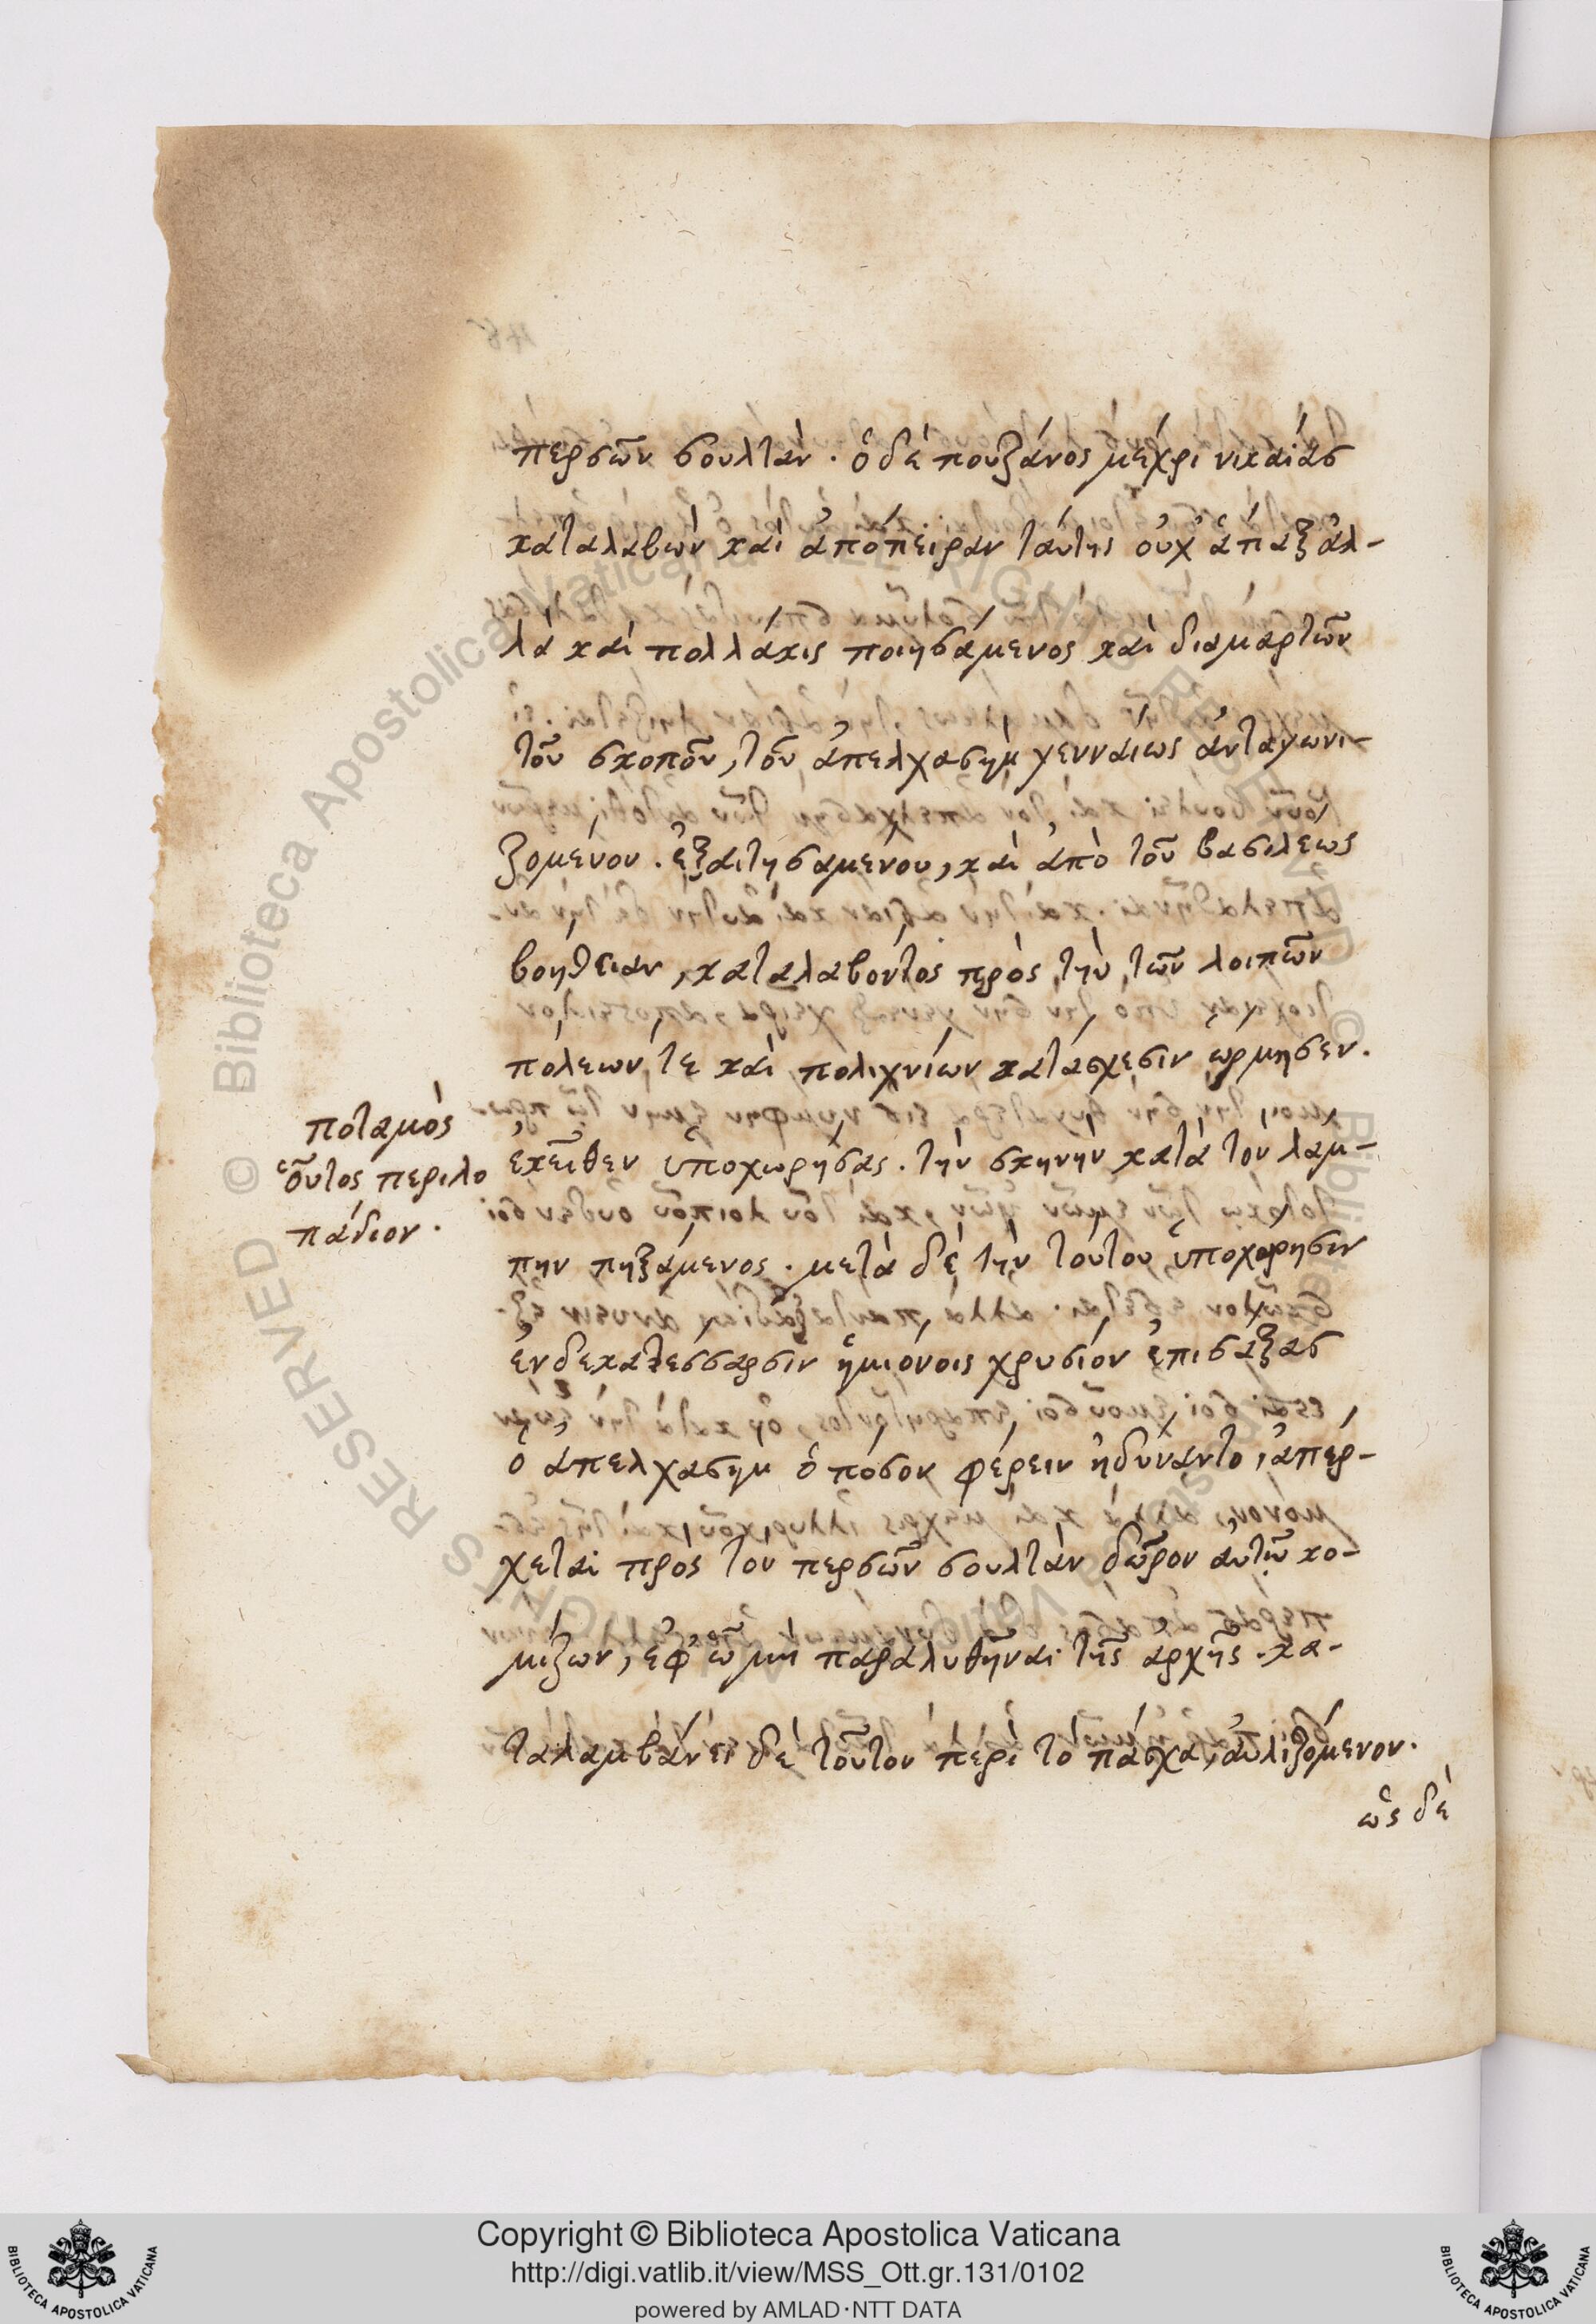 περσῶν σουλτάν. ὁ δὲ πουζάνος μέχρι νικαίας
καταλαβὼν καὶ ἀπόπειραν ταύτης οὐχ ἅπαξ ἀλ-
λὰ καὶ πολλάκις ποιησάμενος καὶ διαμαρτῶν
τοῦ σκοποῦ, τοῦ ἀπελχασὴμ γενναίως ἀνταγωνι-
ζομένου. ἐξαιτησαμένου, καὶ ἀπὸ τοῦ βασιλέως
βοήθειαν, καταλαβόντος πρὸς τὴν τῶν λοιπῶν
πόλεων τε καὶ πολιχνίων κατάσχεσιν ὥρμησεν.
ποταμὸς
οὗτος περιλο
πάδιον.
ἐκεῖθεν ὑποχωρήσας. τὴν σκηνὴν κατὰ τὸν λαμ-
πην πηξάμενος. μετὰ δὲ τὴν τούτου ὑποχώρησιν
ἐν δεκατέσσαρσιν ἡμιόνοις χρυσίον ἐπισάξας
ὁ ἀπελχασὴμ ὁπόσον φέρειν ἠδύναντο, ἀπέρ-
χεται πρὸς τὸν περσῶν σουλτὰν δῶρον αὐτῷ κο-
μίζων, ἐφ' ᾧ μὴ παραλυθῆναι τῆς ἀρχῆς. κα-
ταλαμβάνει δὲ τοῦτον περὶ τὸ πάσχα, αὐλιζόμενον.
ὡς δὲ
Copyright © Biblioteca Apostolica Vaticana
http://digi.vatlib.it/view/MSS_Ott.gr.131/0102
powered by AMLAD·NTT DATA
BIBLIOTECA APOSTOLICA VATICANA
BIBLIOTECA APOSTOLICA VATICANA